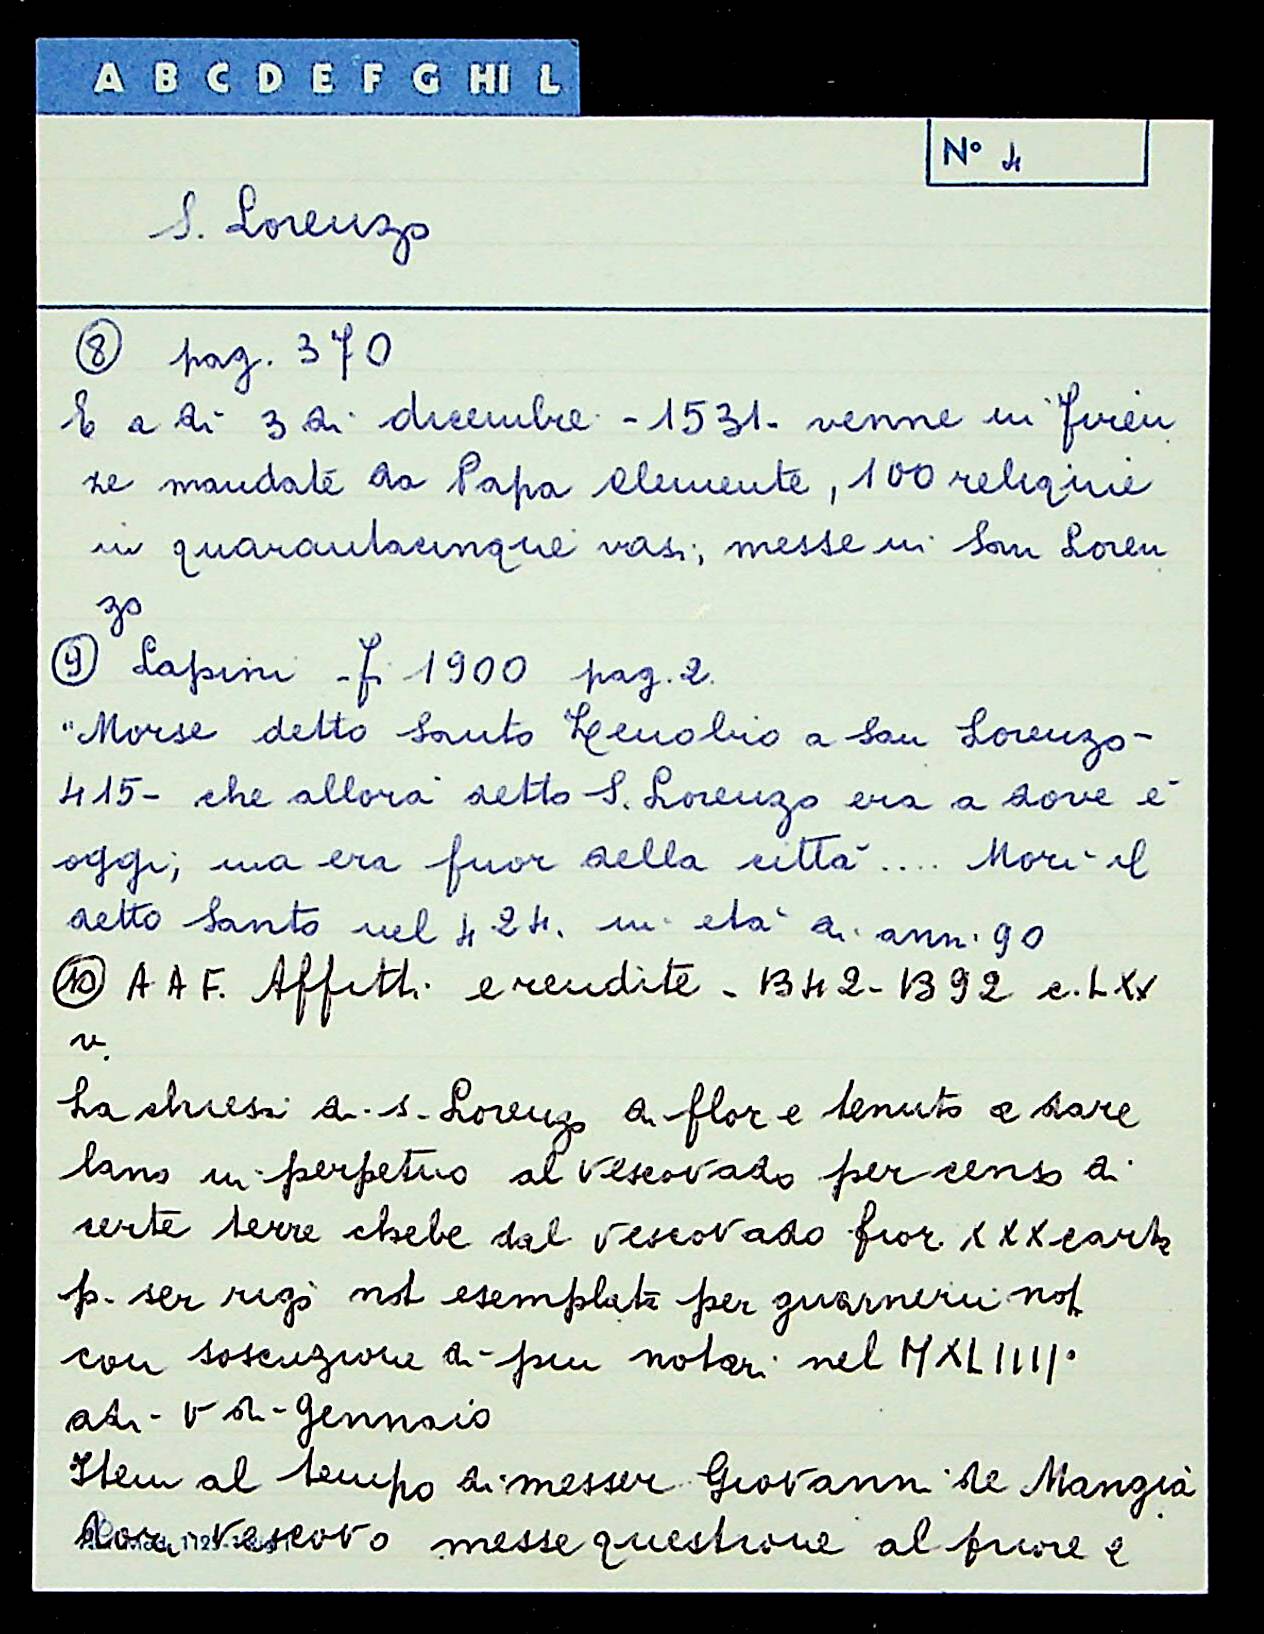 A B C D E F G HI L
N° 4
S. Lorenzo
8 pag. 370
E a dì 3 di dicembre - 1531 - venne in Firen
ze mandate da Papa Clemente, 100 reliquie
in quarantacinque vasi, messe in San Loren
zo
9 Lapini - Fi 1900 pag. 2.
"Morse detto Santo Zenobio a San Lorenzo -
415 - che allora detto S. Lorenzo era a dove è
oggi, ma era fuor della città .... Morì il
detto Santo nel 424. in età di anni 90
10 A A F. Affitti e rendite - 1342 - 1392 c. LXX
v.
La chiesa di s. Lorenzo di flor e tenuto a dare
lano in perpetuo al vescovado per censo di
certe terre chebe dal vescovado fior. XXX carta
p. ser rigo not esemplata per guarnerii not
con soscrizione di piu notari nel MXLIIII°
adi - V di - Gennaio
Item al tempo di messer Giovanni de Mangia
dori vescovo messe questione al priore e